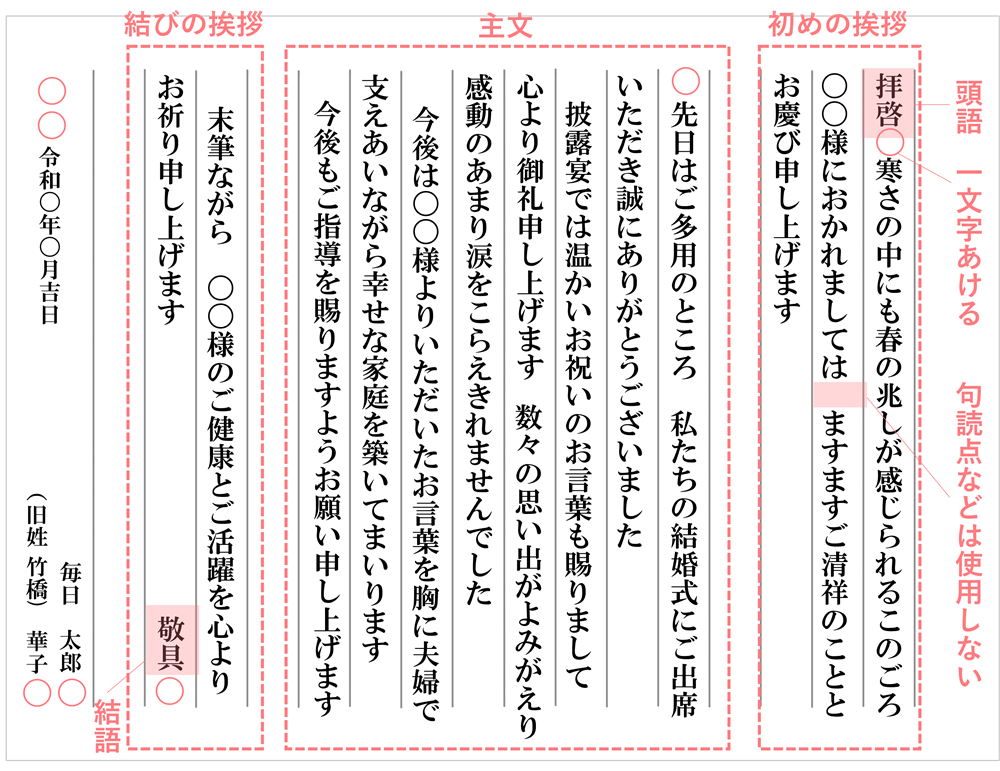 初めの挨拶
頭語
一文字あける
句読点などは使用しない
拝啓〇寒さの中にも春の兆しが感じられるこのごろ
〇〇様におかれましては　ますますご清祥のことと
お慶び申し上げます
主文
〇先日はご多用のところ　私たちの結婚式にご出席
いただき誠にありがとうございました
披露宴では温かいお祝いのお言葉も賜りまして
心より御礼申し上げます　数々の思い出がよみがえり
感動のあまり涙をこらえきれませんでした
今後は〇〇様よりいただいたお言葉を胸に夫婦で
支えあいながら幸せな家庭を築いてまいります
今後もご指導を賜りますようお願い申し上げます
結びの挨拶
末筆ながら　〇〇様のご健康とご活躍を心より
お祈り申し上げます　敬具〇
結語
〇〇令和〇年〇月吉日
毎日　太郎〇
（旧姓 竹橋）　華子〇